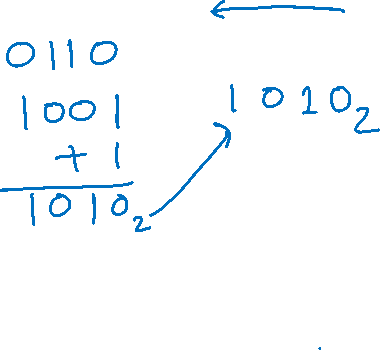 0110
1001
+ 1
1010₂
1010₂